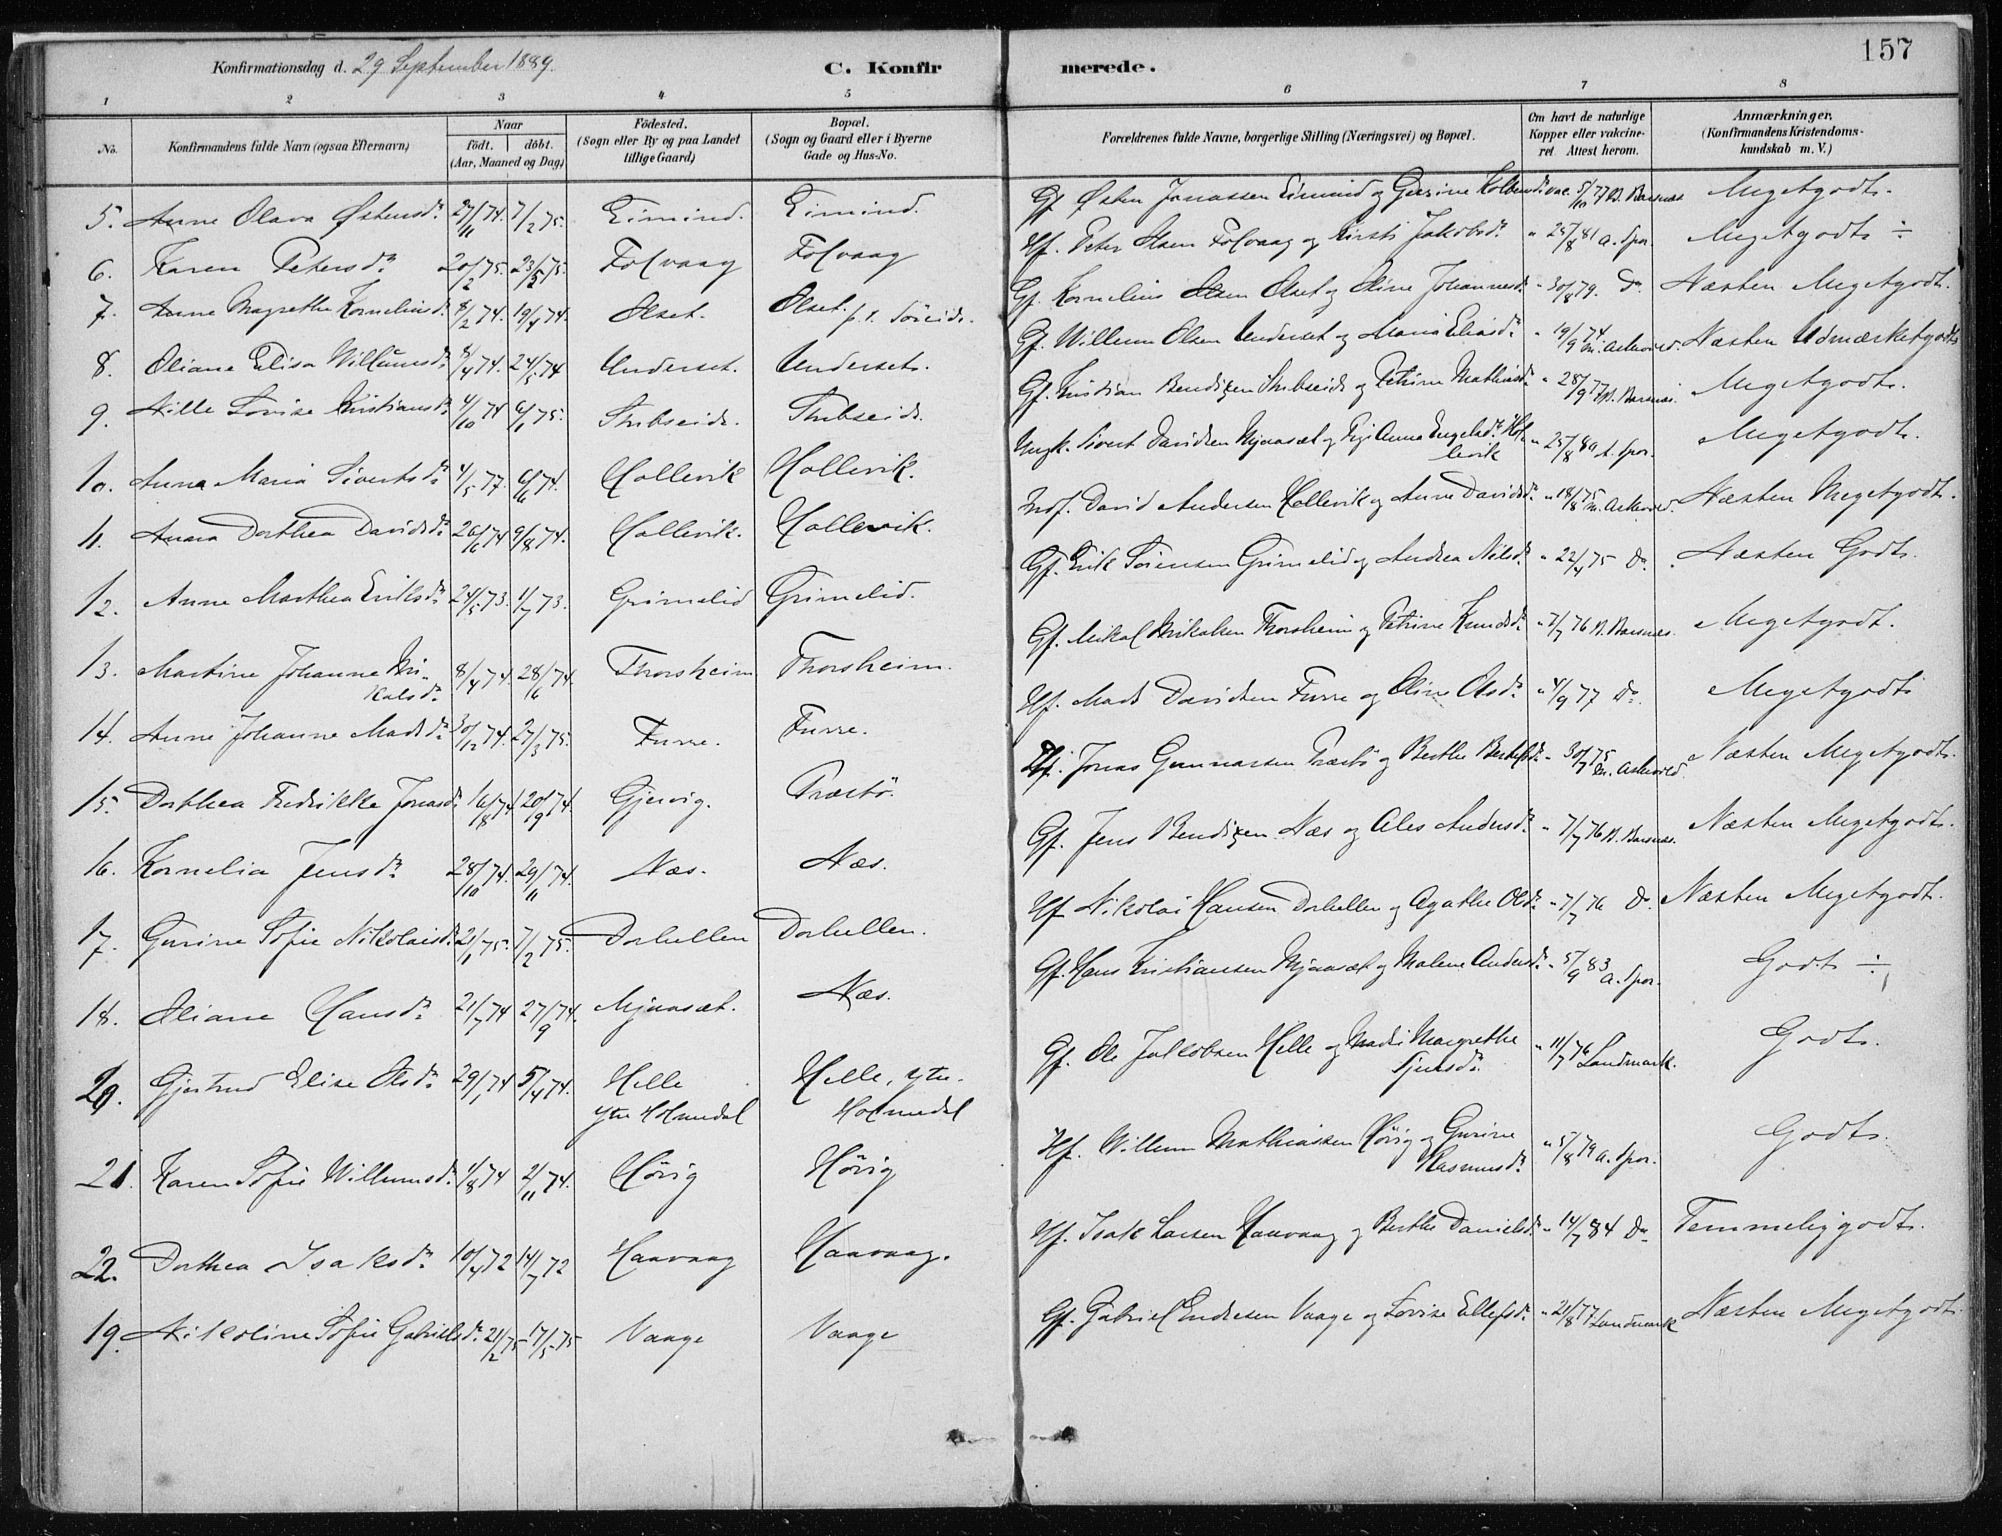 157
Konfirmationsdag d. 29 September 1889.
C. Konfirmerede.
1 2 3 4 5 6 7 8
No.
Konfirmandens fulde Navn (ogsaa Efternavn)
Naar
Födt. döbt.
(Aar, Maaned og Dag)
Födested.
(Sogn eller By og paa Landet
tillige Gaard)
Bopæl.
(Sogn og Gaard eller i Byerne
Gade og Hus-No.
Forældrenes fulde Navne, borgerlige Stilling (Næringsvei) og Bopæl.
Om havt de naturlige
Kopper eller vakcineret. Attest herom.
Anmærkninger.
(Konfirmandens Kristendoms-
kundskab m. V.)
5. Anne Olava Østensdr 27/11 74. 7/2 75. Eimind. Eimind. Gf. Østen Jonassen Eimind og Gurine vac. 5/10 77 B. Barsnæs Megetgodt.
6. Karen Petersdr 20/2 75. 23/5 75. Folvaag Folvaag Hf. Peter Olsen Folvaag og Kirsti Jakobsdr " 25/8 81 A. Spor. Megetgodt ÷
7. Anne Magrethe Korneliusdr 8/2 74. 19/4 74. Olset. Olset. p.t. Söreide. Gf. Kornelius Olsen Olset og Oline Johannesdr " 30/8 79. Do. Næsten Megetgodt.
8. Oliane Elisa Willumsdr 8/4 74. 24/5 74 Underset. Underset. Gf. Willum Olsen Underset og Maria Eliasdr " 19/9 74 Askevold. Næsten Udmærketgodt
9. Nille Lovise Kristiansdr 4/10 74 6/1 75. Stubseide. Stubseide. Gf. Kristian Bendixen Stubseide og Petrine Mathiasdr " 28/9 77 B. Barsnæs. Megetgodt.
10. Anna Maria Sivertsdr 4/5 77. 6/6 74. Hollevik Hollevik. Ungk. Sivert Davidsen Myaasæt og Pige Anna Engelsdr Hollevik " 25/8 80 A. Spor. Megetgodt.
11. Anna Dorthea Davidsdr 26/6 74 9/8 74. Hollevik. Hollevik. Inds. David Andersen Hollevik og Anne Davidsdr " 18/8 75 Askevold. Næsten Megetgodt.
12. Anne Marthea Eriksdr 24/5 73. 1/7 73. Grimelid Grimelid. Gf. Erik Sörensen Grimelid og Andrea Nilsdr " 22/4 75 Do. Næsten Godt.
13. Martine Johanne Mikalsdr 8/4 74. 28/6 74. Thorsheim Thorsheim. Gf. Mikal Mikalsen Thorsheim og Petrine Knudsdr " 7/7 76 B. Barsnæs. Megetgodt.
14. Anne Johanne Madsdr 30/12 74. 27/3 75. Furre. Furre. Hf. Mads Davidsen Furre og Oline Olsdr " 4/9 77 Do. Megetgodt
15. Dorthea Fredrikke Jonasdr 16/8 74 20/9 74. Gjervig. Træstö. Hf. Jonas Gunnarsen Træstö og Berthe Bertelsdr " 30/7 75 Askevold. Næsten Megetgodt.
16. Kornelia Jensdr 28/10 74. 29/11 74. Næs. Næs. Gf. Jens Bendixen Næs og Ales Andersdr " 7/7 76 B. Barsnæs. Næsten Megetgodt.
17. Gurine Sofie Nikolaisdr 21/1 75. 7/2 75. Dorhellen Dorhellen. Hf. Nikolai Hansen Dorhellen og Agathe Olsdr " 7/7 76 Do. Næsten Megetgodt.
18. Oliane Hansdr 21/7 74 27/9 74. Myaasæt. Næs. Gf. Hans Kristiansen Myaasæt og Malene Andersdr " 5/9 83 A. Spor. Godt ÷
20. Gjertrud Elise Olsdr 29/1 74 5/4 74. Helle ytre Holmedal Helle, ytre Holmedal Gf. Ole Jakobsen Helle og Margrethe " 11/7 76 Landmark. Godt.
21. Karen Sofie Willumsdr 1/8 74 2/11 74. Hörig Hörig Hf. Willum Mathiassen Hörig og Gurine Rasmusdr " 5/8 79 A. Spor. Godt.
22. Dorthea Isaksdr 10/4 72 14/7 72 Haavaag Haavaag. Hf. Isak Larsen Haavaag og Berthe Danielsdr " 14/7 84 Do. Temmeliggodt.
19. Nikoline Sofie Gabrielsdr 21/2 75 17/5 75 Vaage Vaage Gf. Gabriel Endresen Vaage og Lovise Ellefsdr " 21/8 77 Landmark Næsten Megetgodt.